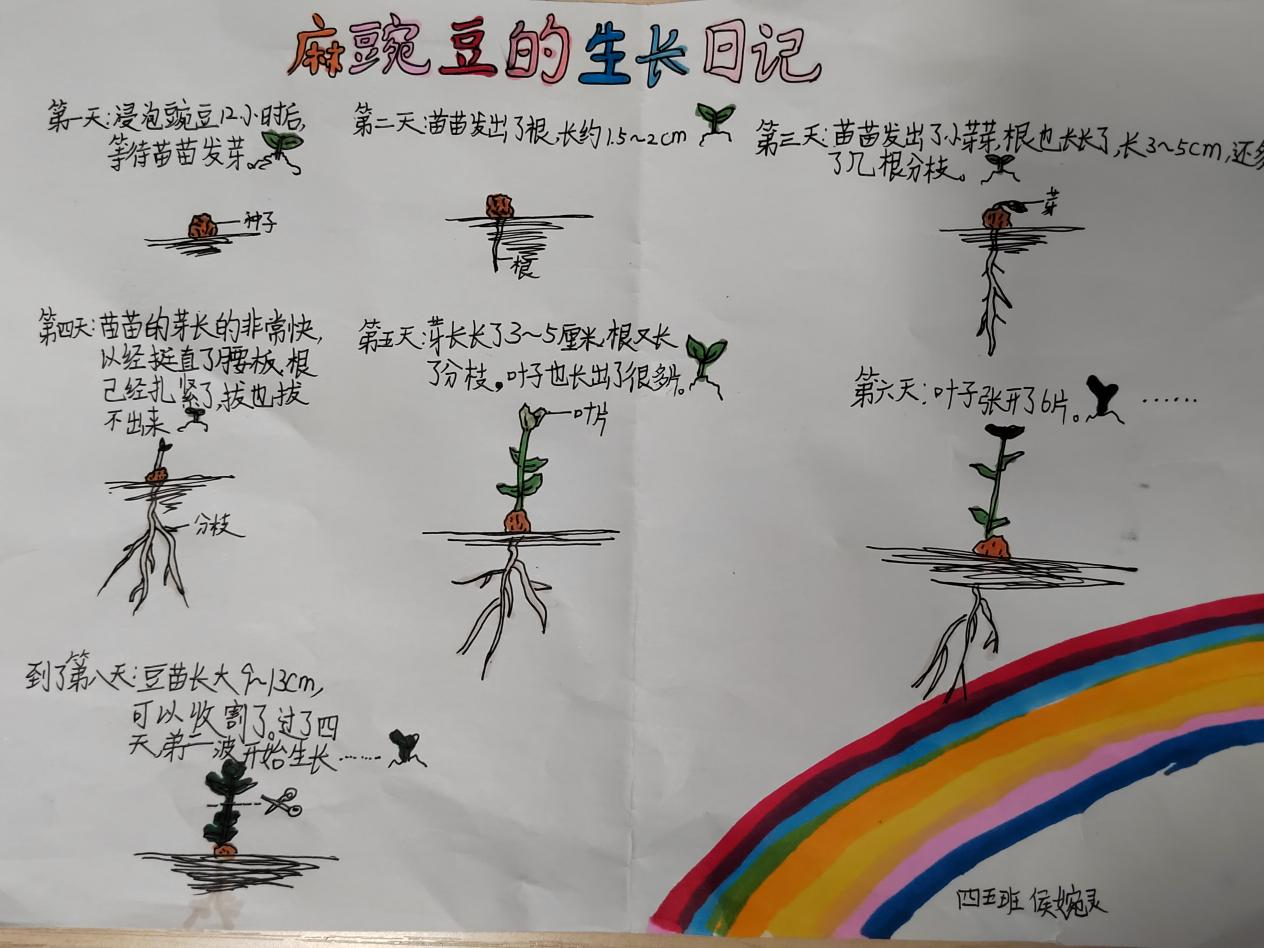 麻豌豆的生长日记
第一天:浸泡豌豆12小时后,
等待苗苗发芽。
第二天:苗苗发出了根,长约1.5~2cm
第三天:苗苗发出了小芽芽,根也长长了,长3~5cm,还多
了几根分枝。
种子
根
芽
第四天:苗苗的芽长的非常快,
以经挺直了腰板,根
己经扎紧了,拔也拔
不出来
第五天:芽长长了3~5厘米,根又长
了分枝。叶子也长出了很多片。
第六天:叶子张开了6片。……
叶片
分枝
到了第八天:豆苗长大9~13cm,
可以收割了。过了四
天,第二波开始生长……
四五班 侯婉灵